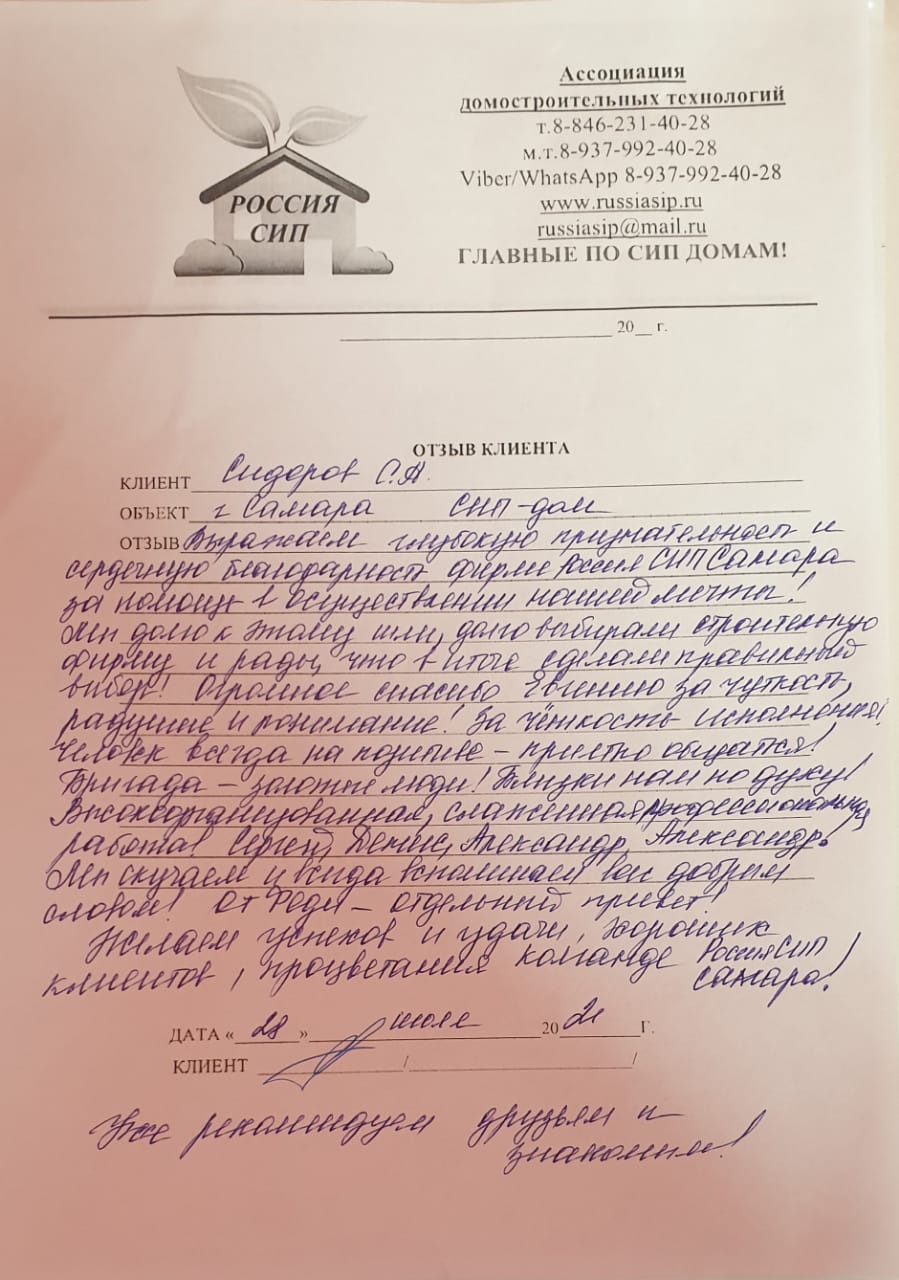 Ассоциация
домостроительных технологий
т.8-846-231-40-28
м.т.8-937-992-40-28
Viber/WhatsApp 8-937-992-40-28
www.russiasip.ru
russiasip@mail.ru
ГЛАВНЫЕ ПО СИП ДОМАМ!
РОССИЯ
СИП
20__ г.
ОТЗЫВ КЛИЕНТА
КЛИЕНТ Сидоров С.А.
ОБЪЕКТ г Самара СИП-дом
ОТЗЫВ Выражаем глубокую признательность и
сердечную благодарность фирме Россия СИП Самара
за помощь в осуществлении нашей мечты!
Мы долго к этому шли, долго выбирали строительную
фирму и рады, что в итоге сделали правильный
выбор! Огромное спасибо Евгению за чуткость,
радушие и понимание! За чёткость исполнения!
Человек всегда на позитиве - приятно общаться!
Бригада - золотые люди! Близки нам по духу!
Высокоорганизованная, слаженная, профессиональная
работа! Сергей, Денис, Александр, Александр!
Мы скучаем и всегда вспоминаем вас добрым
словом! От Феди - отдельный привет!
Желаем успехов и удачи, хороших
клиентов, процветания команде Россия СИП
Самара!
ДАТА « 28 » июля 2021 г.
КЛИЕНТ / /
Уже рекомендуем друзьям и
знакомым!